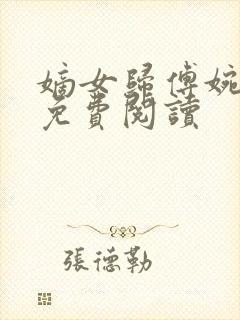 嫡女歸傅婉
免費閱讀
張德勒